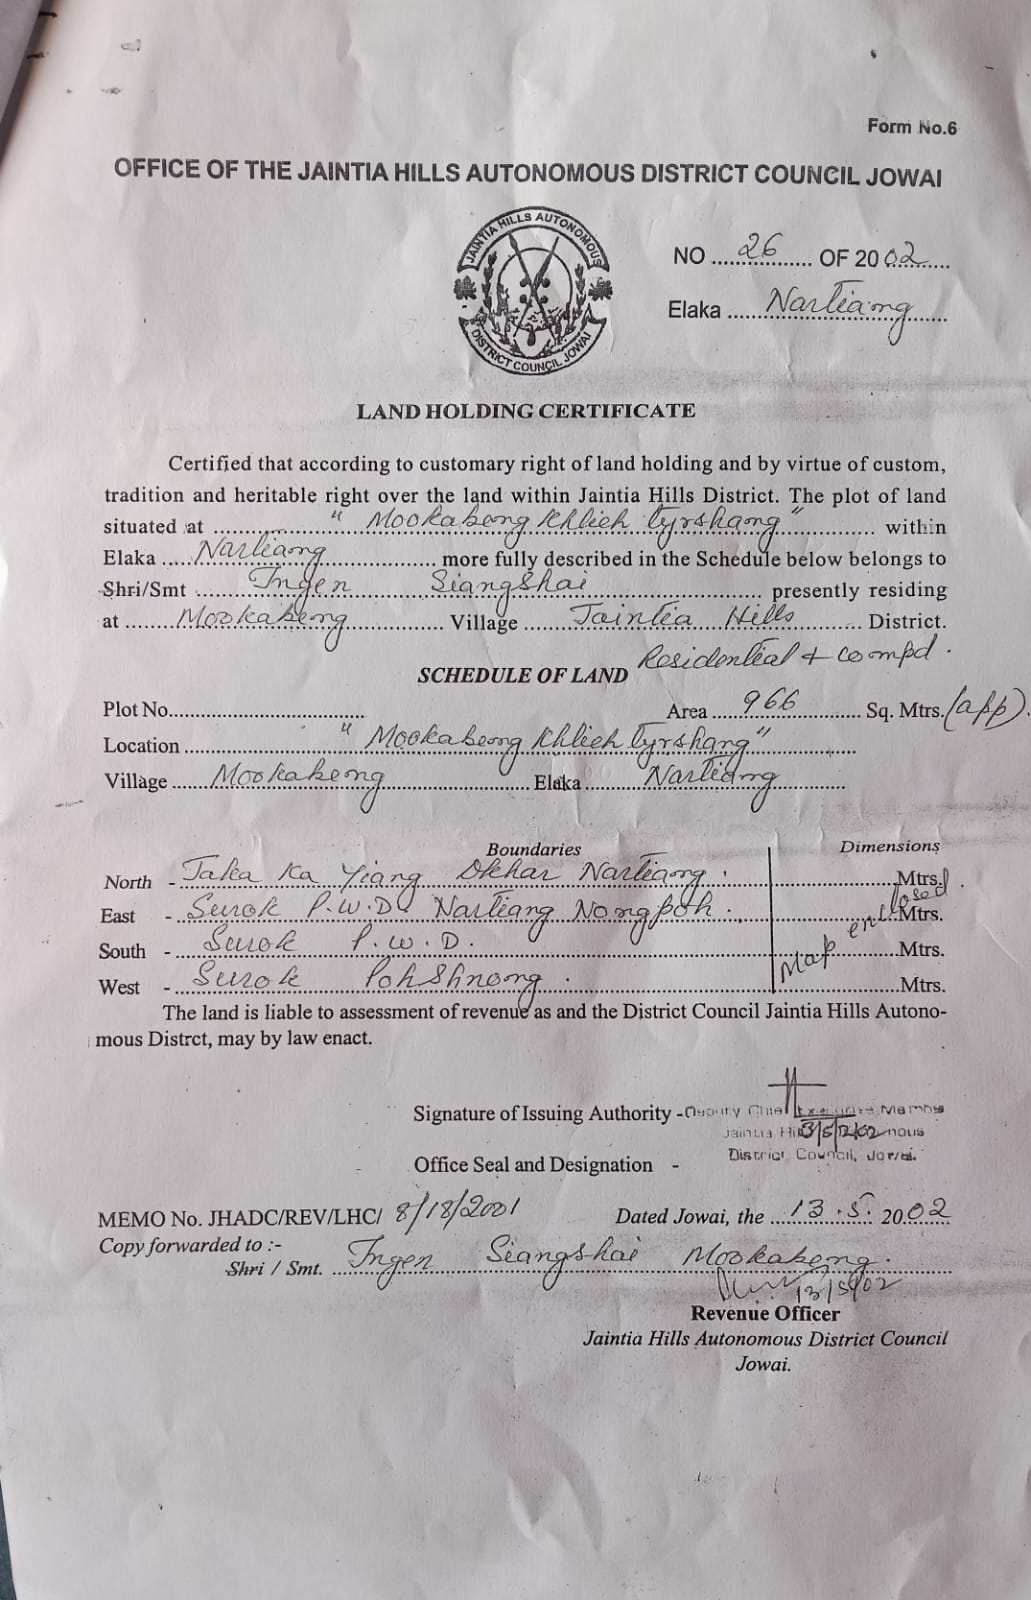 Form No.6
OFFICE OF THE JAINTIA HILLS AUTONOMOUS DISTRICT COUNCIL JOWAI
JAINTIA HILLS AUTONOMOUS
DISTRICT COUNCIL JOWAI
NO ....26.... OF 2002
Elaka ....Nartiang....
LAND HOLDING CERTIFICATE
Certified that according to customary right of land holding and by virtue of custom,
tradition and heritable right over the land within Jaintia Hills District. The plot of land
situated at ...." Mookabeng Khlieh Tyrshang ".... within
Elaka ....Nartiang.... more fully described in the Schedule below belongs to
Shri/Smt ....Ingen Siangshai.... presently residing
at ....Mookabeng.... Village ....Jaintia Hills.... District.
Residential + compd.
SCHEDULE OF LAND
Plot No.................... Area ....966.... Sq. Mtrs. (app).
Location ...." Mookabeng Khlieh Tyrshang "....
Village ....Mookabeng.... Elaka ....Nartiang....
Boundaries Dimensions
North - Taka Ka Yiang Dkhar Nartiang. ....Mtrs.
East - Surok P.W.D. Nartiang Nongpoh. ....Mtrs.
South - Surok P.W.D. ....Mtrs.
West - Surok Pohshnong. ....Mtrs.
Map enclosed.
The land is liable to assessment of revenue as and the District Council Jaintia Hills Autono-
mous Distrct, may by law enact.
Signature of Issuing Authority - Deputy Chief Executive Member
Jaintia Hills Autonomous
District Council, Jowai.
Office Seal and Designation -
MEMO No. JHADC/REV/LHC/ 8/18/2001 Dated Jowai, the ....13.5.2002
Copy forwarded to :-
Shri / Smt. ....Ingen Siangshai Mookabeng.
13/5/02
Revenue Officer
Jaintia Hills Autonomous District Council
Jowai.